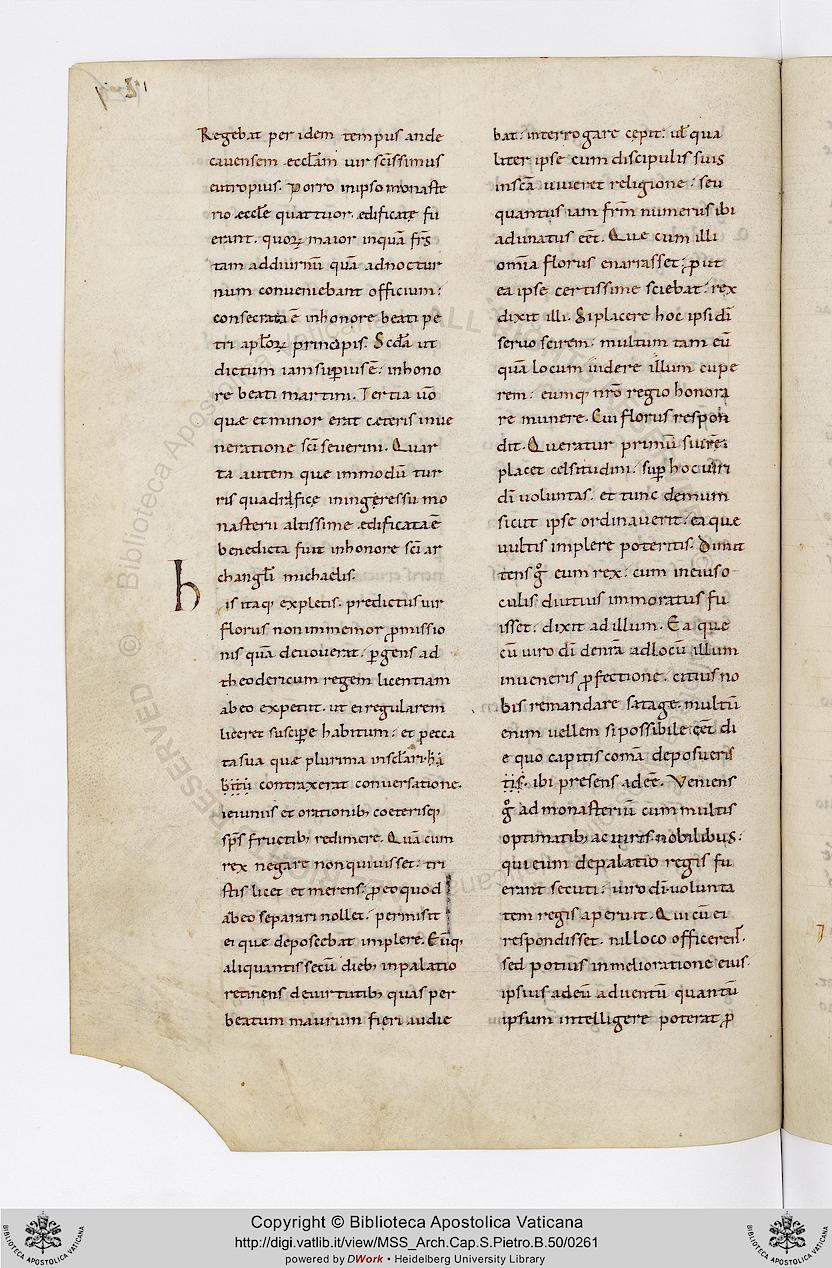 Regebat per idem tempus ande
cavensem ecclãm uir scissimus
eutropius. Porro inipso monaste
rio ecclę quattuor ędificatę fu
erunt. quoꝝ maior inquã frs̃
tam addiurnũ quã adnoctur
num conveniebant officium:
consecrata ẽ inhonore beati pe
tri aplõꝝ principis. Scda ut
dictum iam supius ẽ: inhono
re beati martini. Tertia uõ
que et minor erat cæteris inue
neratione scĩ severini. Quar
ta autem que immodũ tur
ris quadrifice iningressu mo
nasterii altissime ędificata ẽ
benedicta fuit inhonore scĩ ar
changli michaelis.
his itaq; expletis. predictus uir
florus non immemor ꝓmissio
nis quã devouerat. ꝑgens ad
theodericum regem licentiam
ab eo expetiit. ut ei regularem
liceret suscipe habitum: et pecca
ta sua que plurima in sclari ha
bitu contraxerat conversatione.
ieiuniis et orationib; cæterisq;
sp̃s fructib; redimere. Quã cum
rex negare non quivisset: tri
stis licet et merens: ꝓ eo quod
ab eo separari nollet: permisit
ei que deposcebat implere. Eũq;
aliquantis secũ dieb; in palatio
retinens de uirtutib; quas per
beatum maurum fieri audie
bat: interrogare cepit: ul qua
liter ipse cum discipulis suis
in scã uiueret religione: seu
quantus iam frm̃ numerus ibi
adunatus eẽt. Que cum illi
omĩa florus enarrasset: ꝓut
ea ipse certissime sciebat: rex
dixit illi. Si placere hoc ipsi dĩ
servo scirem: multum tam eũ
quã locum uidere illum cupe
rem: eumq; nrõ regio honora
re munere. Cui florus respon
dit. Queratur primũ si uire
placet celsitudini: sup hoc uiri
dĩ uoluntas. et tunc demum
sicut ipse ordinaverit: ea que
uultis implere poteritis. Dimit
tens g̊ eum rex: cum in eius o
culis diutius immoratus fu
isset: dixit ad illum. Ea que
cũ uiro dĩ de nrã ad locũ illum
inueneris ꝓfectione. citius no
bis remandare satage. multũ
enim uellem si possibile eẽt di
e quo capitis comã deposueris
tis̃. ibi presens adeẽ. Veniens
g̊ ad monasteriũ cum multis
optimatib; ac uiris nobilibus:
qui eum de palatio regis fu
erant secuti: uiro dĩ uolunta
tem regis aperuit. Qui cũ ei
respondisset. nil loco officeret.
sed potius in melioratione eius
ipsius ad eũ adventũ quantũ
ipsum intelligere poterat ꝓ
Copyright © Biblioteca Apostolica Vaticana
http://digi.vatlib.it/view/MSS_Arch.Cap.S.Pietro.B.50/0261
powered by DWork • Heidelberg University Library